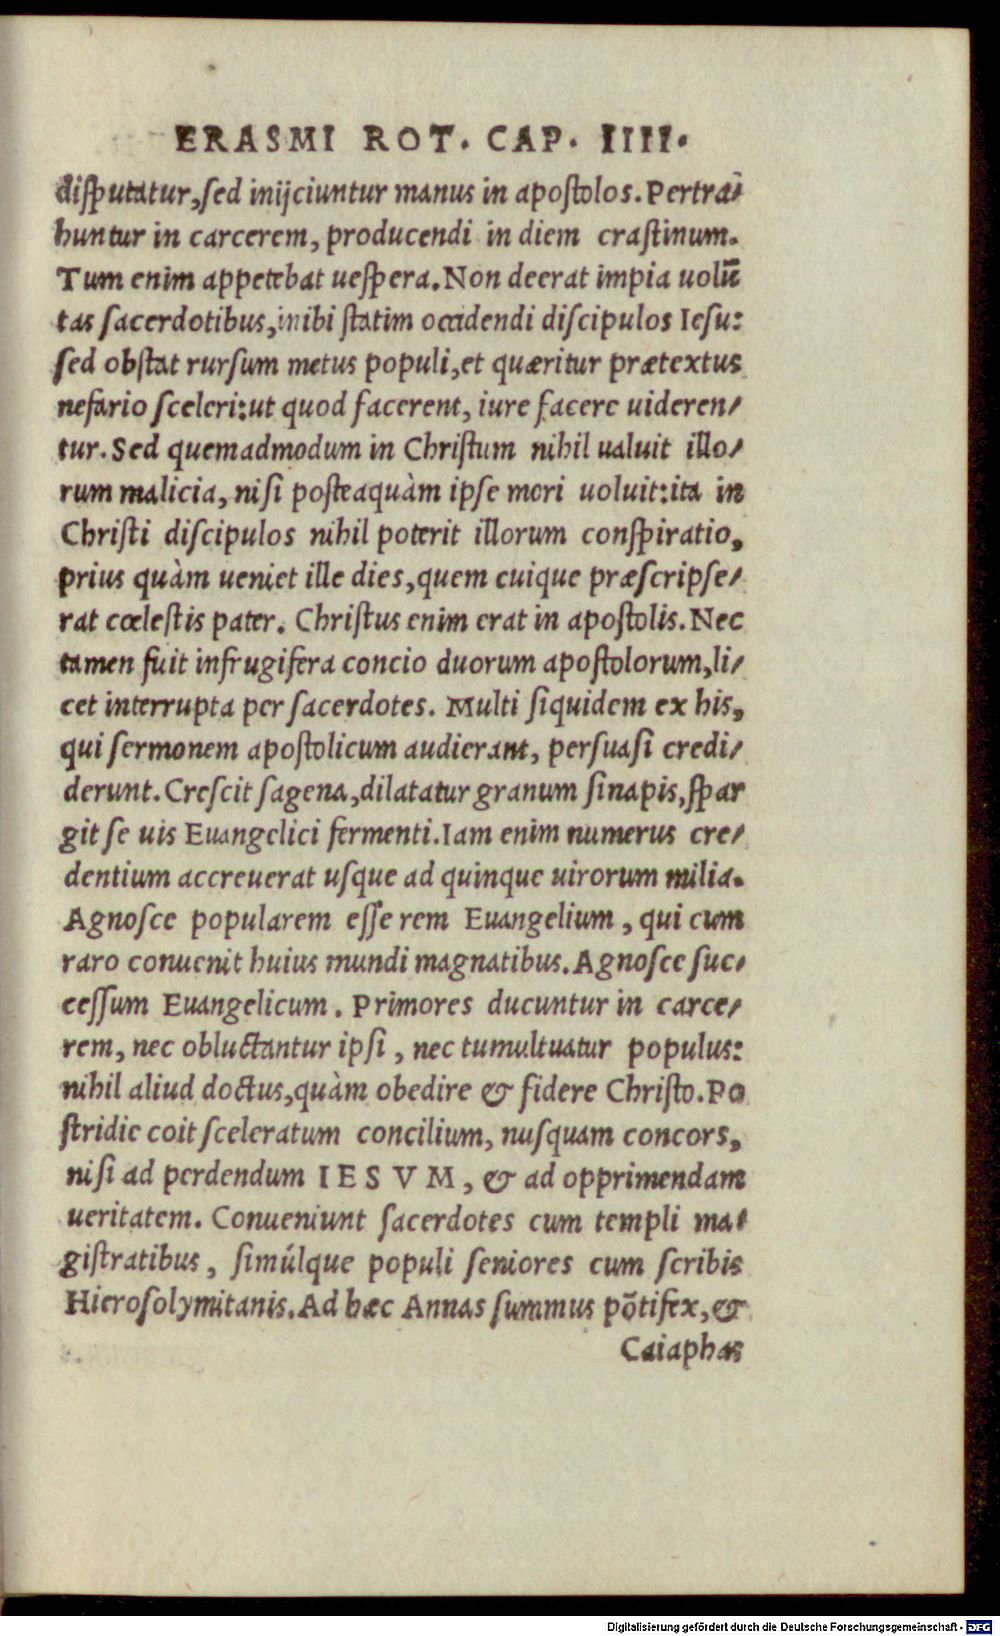 ERASMI ROT. CAP. IIII.
disputatur, sed inijciuntur manus in apostolos. Pertra-
huntur in carcerem, producendi in diem crastinum.
Tum enim appetebat uespera. Non deerat impia uolū
tas sacerdotibus, inibi statim occidendi discipulos Iesu:
sed obstat rursum metus populi, et quæritur prætextus
nefario sceleri: ut quod facerent, iure facere uideren-
tur. Sed quemadmodum in Christum nihil ualuit illo-
rum malicia, nisi posteaquàm ipse mori uoluit: ita in
Christi discipulos nihil poterit illorum conspiratio,
prius quàm ueniet ille dies, quem cuique præscripse-
rat cœlestis pater. Christus enim erat in apostolis. Nec
tamen fuit infrugifera concio duorum apostolorum, li-
cet interrupta per sacerdotes. Multi siquidem ex his,
qui sermonem apostolicum audierant, persuasi credi-
derunt. Crescit sagena, dilatatur granum sinapis, spar
git se uis Euangelici fermenti. Iam enim numerus cre-
dentium accreuerat usque ad quinque uirorum milia.
Agnosce popularem esse rem Euangelium, qui cum
raro conuenit huius mundi magnatibus. Agnosce suc-
cessum Euangelicum. Primores ducuntur in carce-
rem, nec obluctantur ipsi, nec tumultuatur populus:
nihil aliud doctus, quàm obedire & fidere Christo. Po
stridie coit sceleratum concilium, nusquam concors,
nisi ad perdendum IESVM, & ad opprimendam
ueritatem. Conueniunt sacerdotes cum templi ma-
gistratibus, simúlque populi seniores cum scribis
Hierosolymitanis. Ad hæc Annas summus põtifex, &
Caiaphas
Digitalisierung gefördert durch die Deutsche Forschungsgemeinschaft - DFG